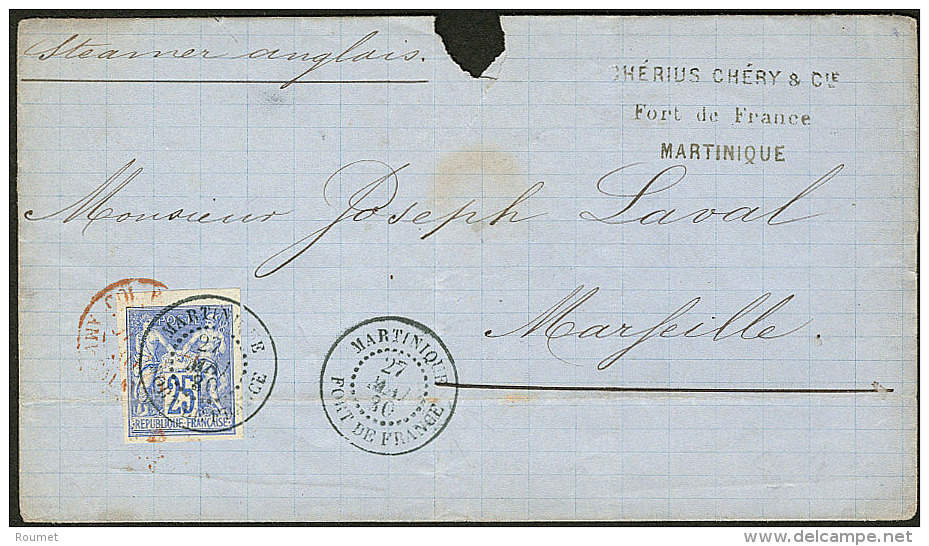 Steamer anglais.
CHÉRIUS CHÉRY & CIE
Fort de France
MARTINIQUE
Monsieur Joseph Laval
Marseille.
MARTINIQUE
27
MAI
80
25
REPUBLIQUE FRANÇAISE
MARTINIQUE
27
MAI
80
FORT DE FRANCE
Roumet
www.delcampe.net